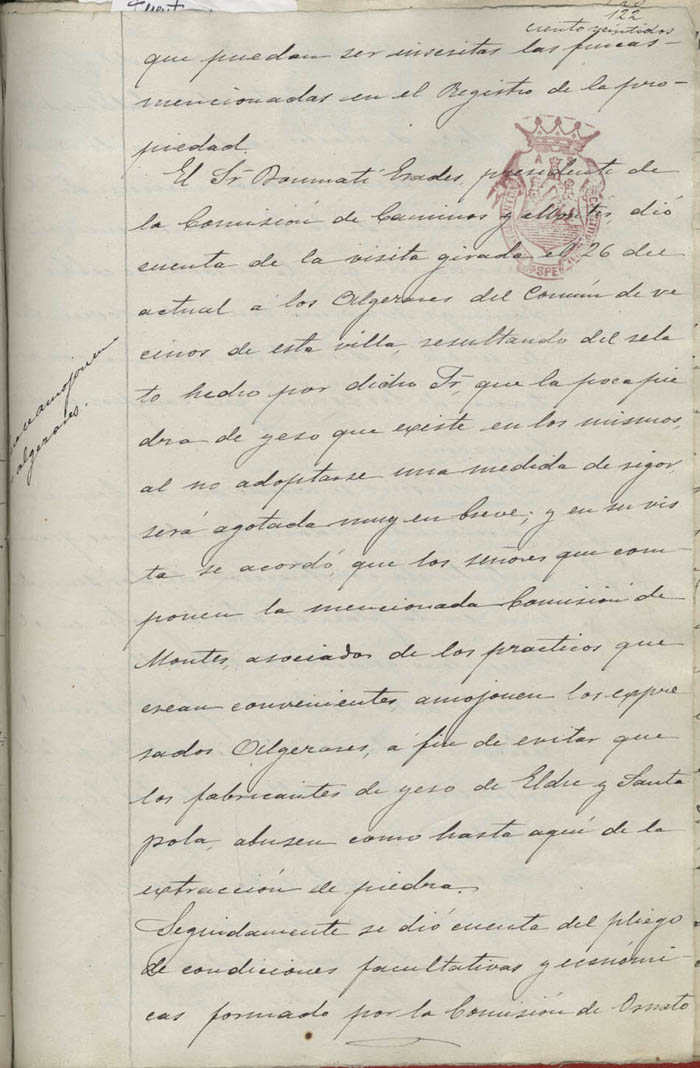 122
ciento veintidos
que puedan ser inscritas las fincas
mencionadas en el Registro de la pro-
piedad.
El Sr. Boumatí Erades, presidente de
la Comisión de Caminos y Montes, dió
cuenta de la visita girada el 26 del
actual á los Algezares del Común de ve
cinos de esta villa, resultando del rela
to hecho por dicho Sr., que la poca pie
dra de yeso que existe en los mismos,
al no adoptarse una medida de rigor
será agotada muy en breve; y en su vis
ta se acordó, que los señores que com-
ponen la mencionada Comisión de
Montes, asociados de los practicos que
crean convenientes, amojonen los expre
sados Algezares, á fin de evitar que
los fabricantes de yeso de Elche y Santa
pola, abusen como hasta aquí de la
extracción de piedra.
Seguidamente se dió cuenta del pliego
de condiciones facultativas y económi-
cas formado por la Comisión de Ornato
amojonen
algezares.